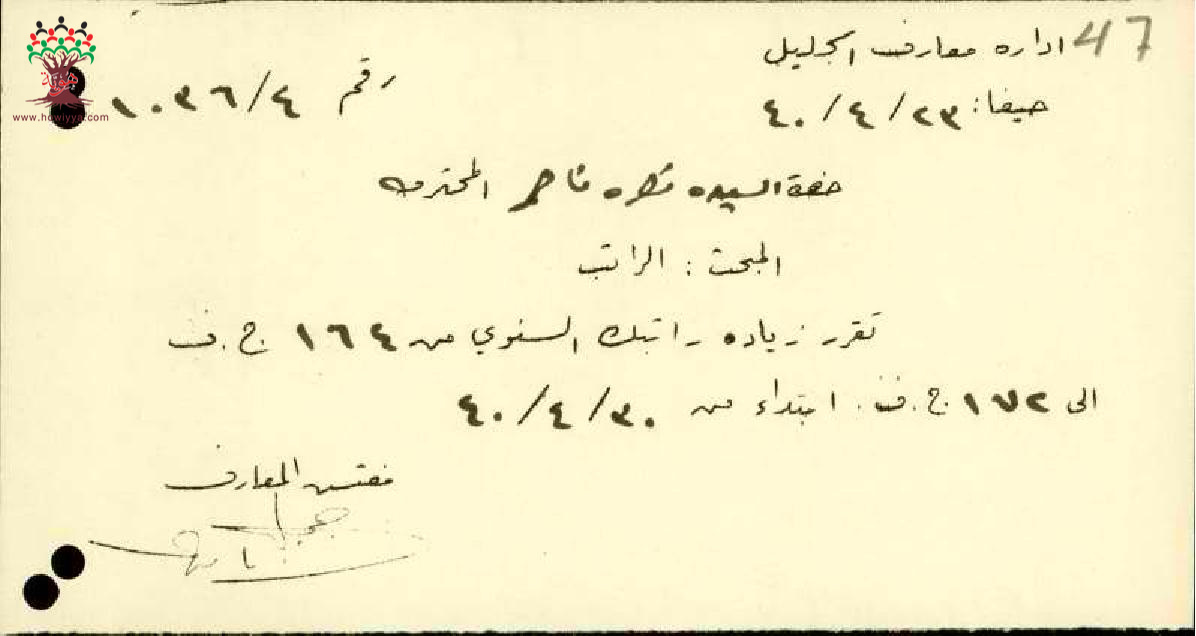 47
اداره معارف الجليل
حيفا: ٢٣/٤/٤٠
رقم ١٠٣٦/٤
حضرة السيده ناصر المحترمه
المبحث: الراتب
تقرر زياده راتبك السنوي من ١٦٤ ج.ف
الى ١٧٢ ج.ف. ابتداء من ٣٠/٤/٤٠
مفتش المعارف
هوية
www.howiyya.com